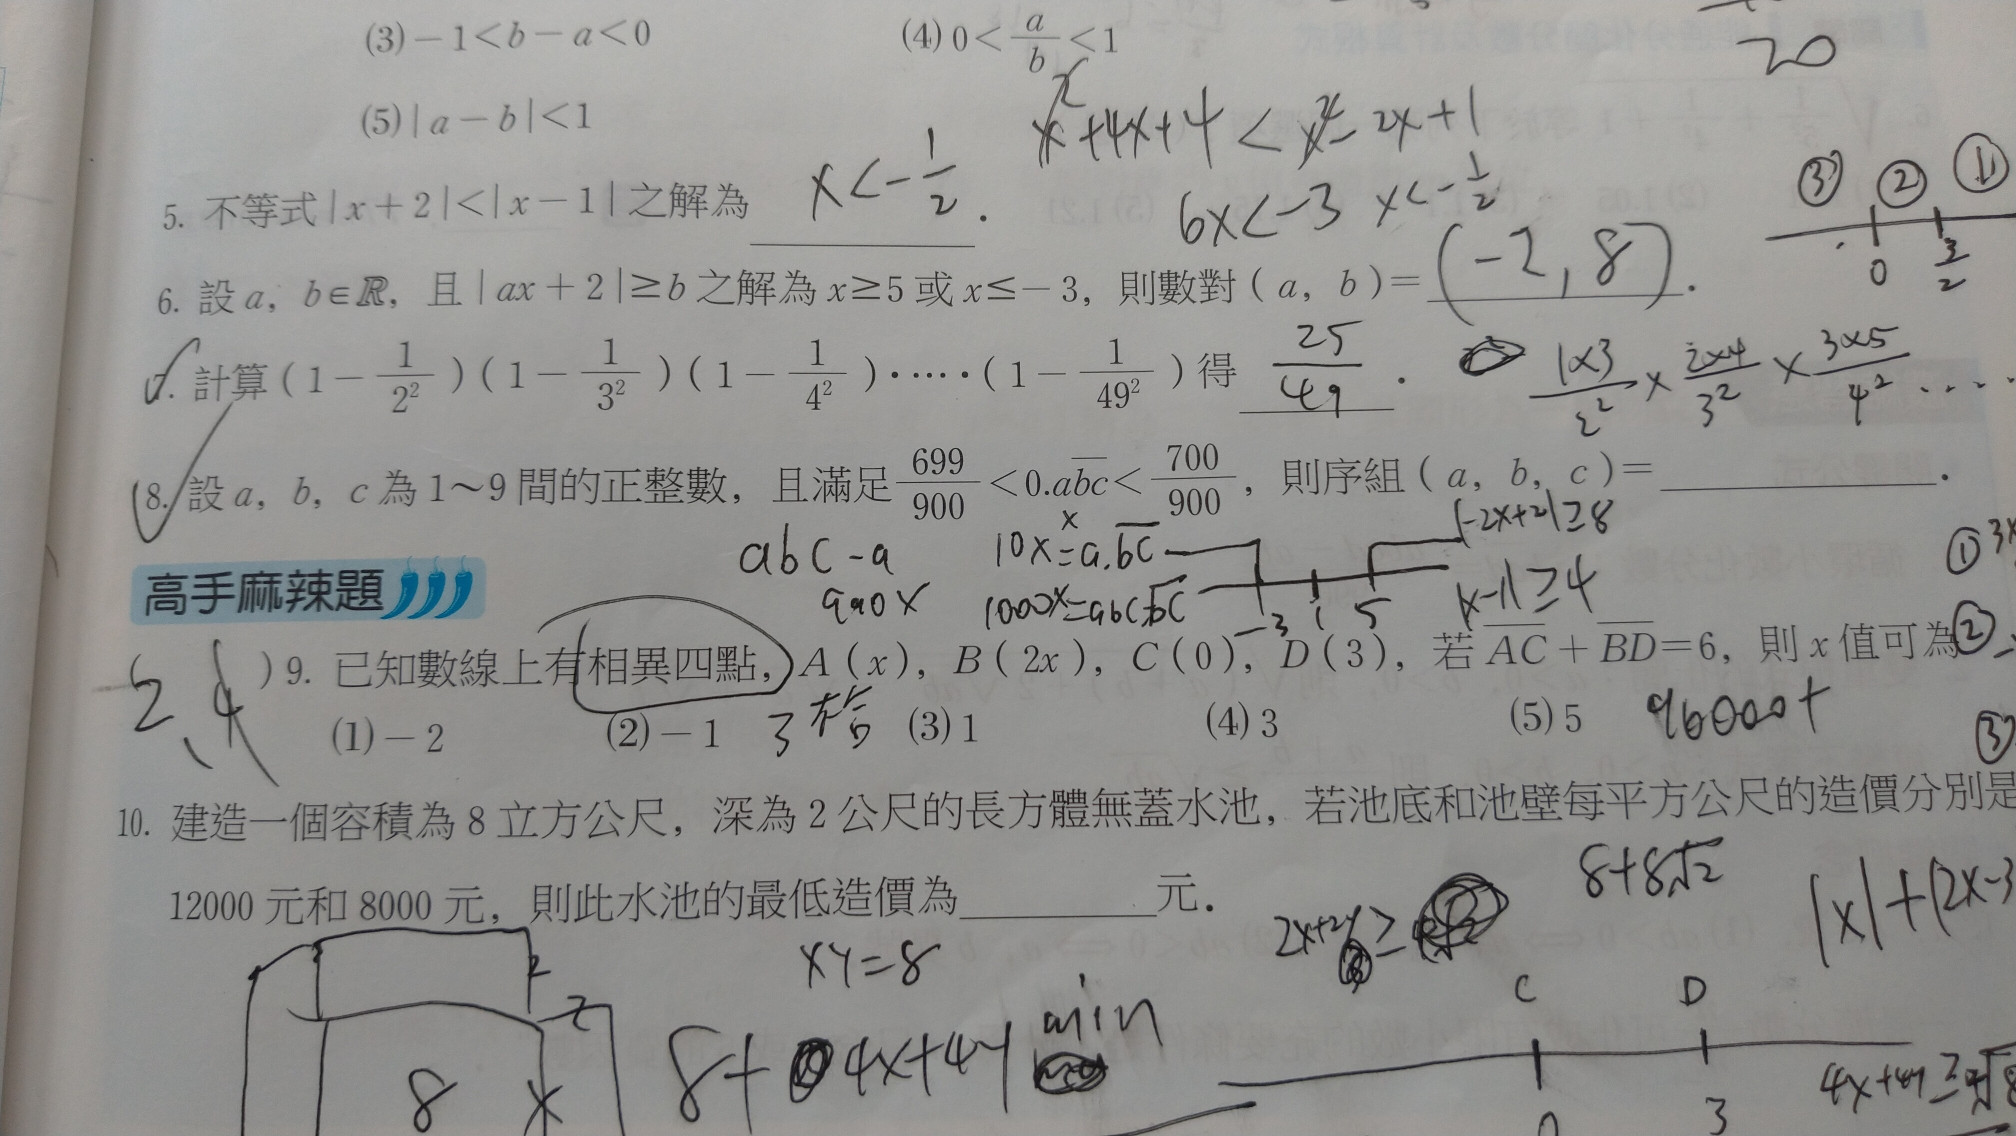 (3) −1<b−a<0
(4) 0<a/b<1
20
(5) |a−b|<1
x²+4x+4 < x²−2x+1
5. 不等式|x+2|<|x−1|之解為 x<−1/2 .
6x<−3 x<−1/2
③ ② ①
0 3/2
6. 設a, b∈ℝ, 且|ax+2|≥b之解為x≥5或x≤−3, 則數對(a, b)= (−2, 8) .
7. 計算(1−1/2²)(1−1/3²)(1−1/4²)·····(1−1/49²)得 25/49 .
1×3/2² × 2×4/3² × 3×5/4² ....
8. 設a, b, c為1~9間的正整數, 且滿足699/900<0.a\overline{bc}<700/900, 則序組(a, b, c)=________.
x
|−2x+2|≥8
abc−a
10x=a.\overline{bc}
990x
1000x=abc.\overline{bc}
−3 1 5
|x−1|≥4
① 3x
高手麻辣題
2、4
( )9. 已知數線上有相異四點, A(x), B(2x), C(0), D(3), 若\overline{AC}+\overline{BD}=6, 則x值可為
②
(1)−2
(2)−1
(3) 1
(4) 3
(5) 5
96000+
③
10. 建造一個容積為8立方公尺, 深為2公尺的長方體無蓋水池, 若池底和池壁每平方公尺的造價分別是
12000元和8000元, 則此水池的最低造價為________元.
8+8√2
|x|+|2x−3
xy=8
2x+2y≥
2
8+4x+4y min
8 x
C D
0 3